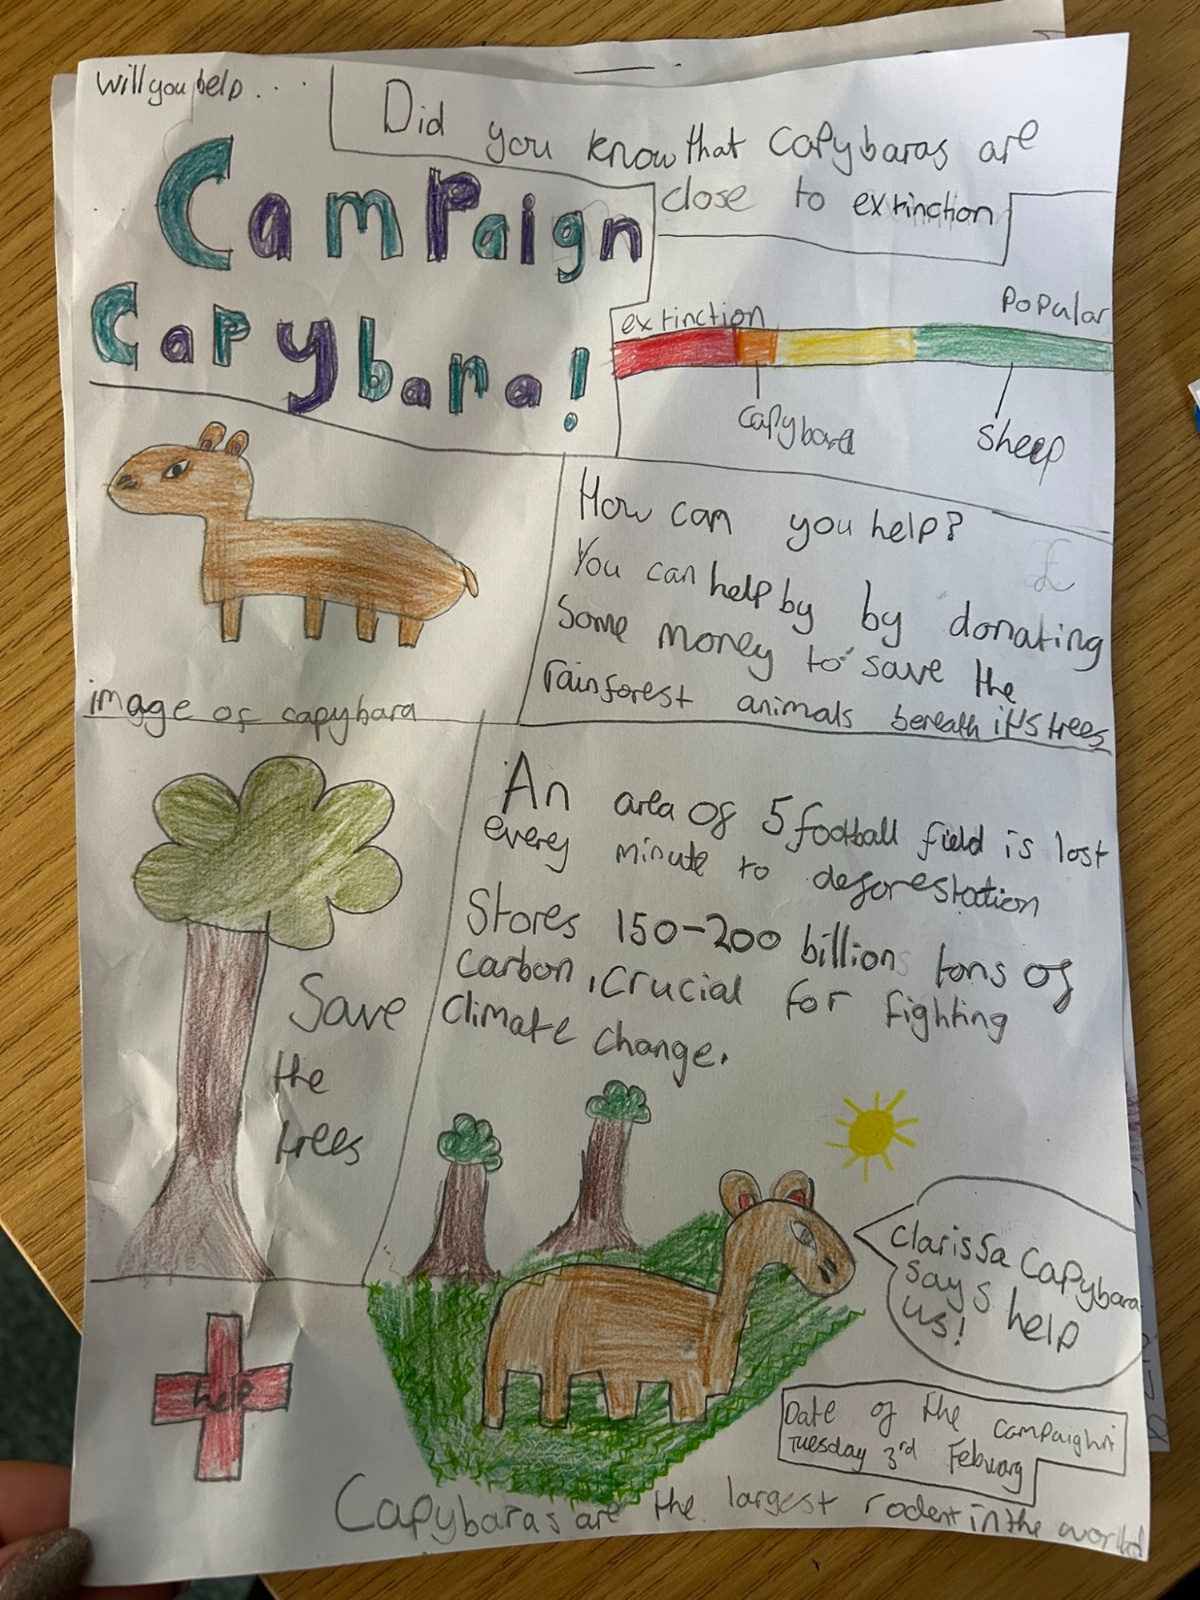 Will you help . . .
Campaign
Capybara!
Did you know that capybaras are
close to extinction
extinction
Popular
capybara
sheep
image of capybara
How can you help?
You can help by by donating
Some money to save the
rainforest animals beneath it's trees
£
An area of 5 football field is lost
every minute to deforestation
Stores 150-200 billion tons of
carbon, Crucial for fighting
climate change.
Save
the
trees
help
Clarissa Capybara
says help
us!
Date of the campaighn
Tuesday 3rd Febuary
Capybaras are the largest rodent in the world